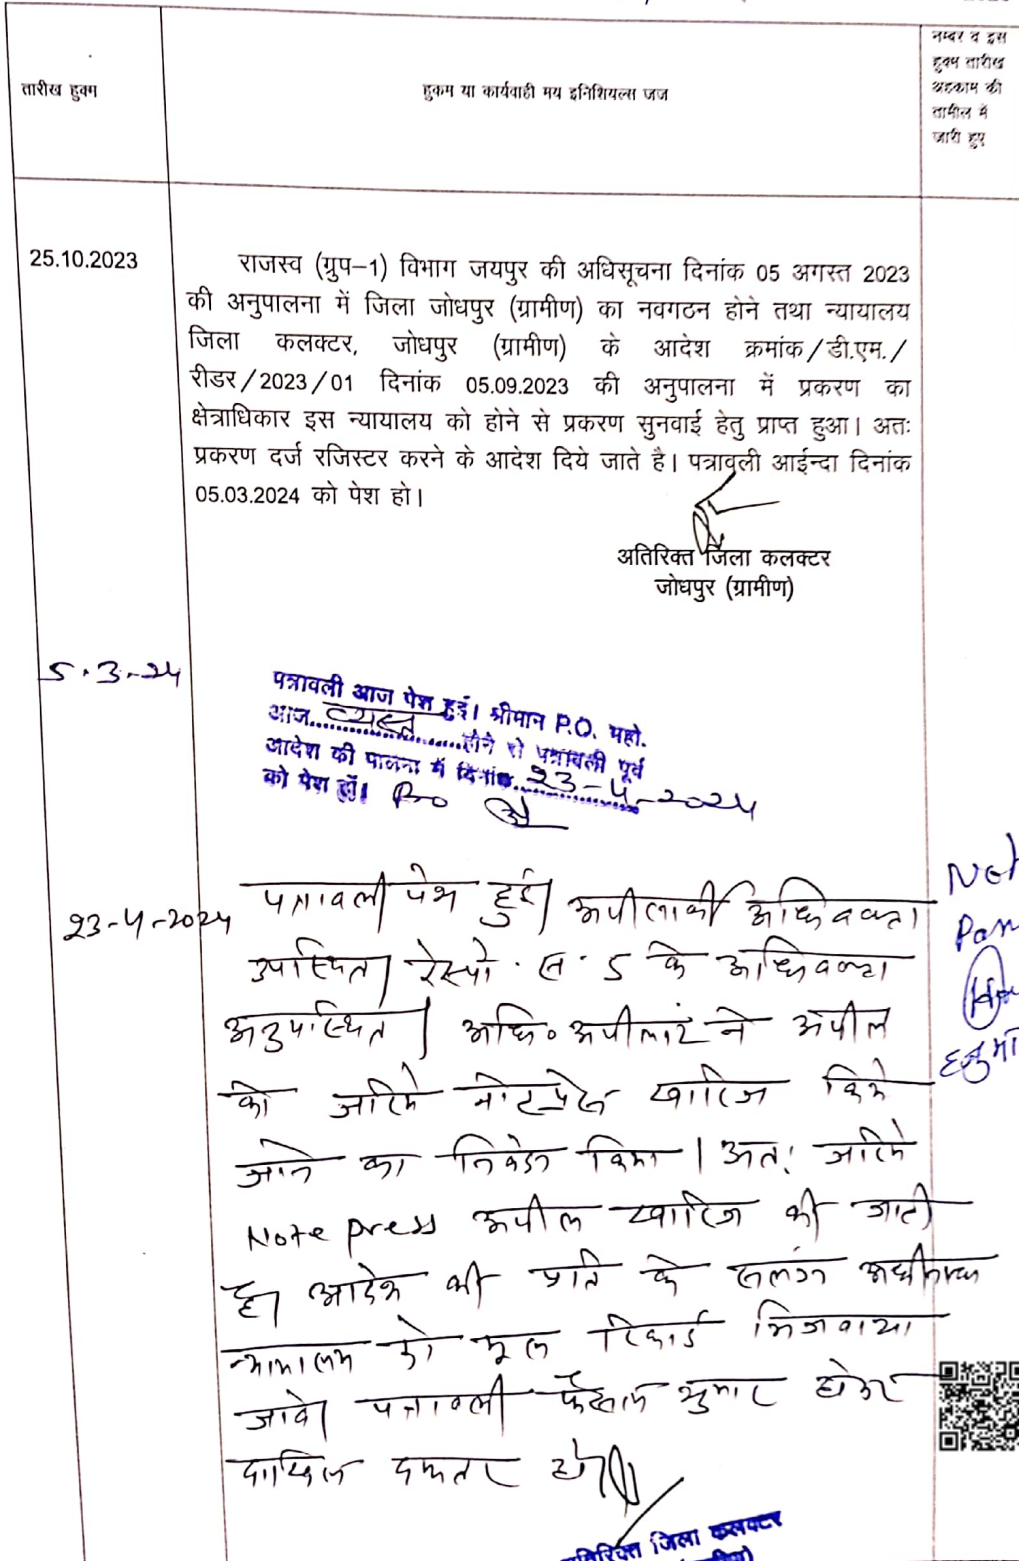 तारीख हुक्म
हुकम या कार्यवाही मय इनिशियल्स जज
नम्बर व इस
हुक्म तारीख
अहकाम की
तामील में
जारी हुए
25.10.2023
राजस्व (ग्रुप–1) विभाग जयपुर की अधिसूचना दिनांक 05 अगस्त 2023
की अनुपालना में जिला जोधपुर (ग्रामीण) का नवगठन होने तथा न्यायालय
जिला कलक्टर, जोधपुर (ग्रामीण) के आदेश क्रमांक/डी.एम./
रीडर/2023/01 दिनांक 05.09.2023 की अनुपालना में प्रकरण का
क्षेत्राधिकार इस न्यायालय को होने से प्रकरण सुनवाई हेतु प्राप्त हुआ। अतः
प्रकरण दर्ज रजिस्टर करने के आदेश दिये जाते है। पत्रावली आईन्दा दिनांक
05.03.2024 को पेश हो।
अतिरिक्त जिला कलक्टर
जोधपुर (ग्रामीण)
5.3.-24
पत्रावली आज पेश हुई। श्रीमान P.O. महो.
आज व्यस्त होने से पत्रावली पूर्व
आदेश की पालना में दिनांक 23-4-2024
को पेश हों।
23-4-2024
पत्रावली पेश हुई। अपीलार्थी अधिवक्ता
उपस्थित। रेस्पो. स. 5 के अधिवक्ता
अनुपस्थित। अधि० अपीलांट ने अपील
को जरिये नोटप्रेस खारिज किये
जाने का निवेदन किया। अतः जरिये
Note press अपील खारिज की जाती
है। आदेश की प्रति के संलग्न अधीनस्थ
न्यायालय को मूल रिकार्ड भिजवाया
जावे। पत्रावली फैसल शुमार होकर
दाखिल दफ्तर हो।
Not
अतिरिक्त जिला कलक्टर